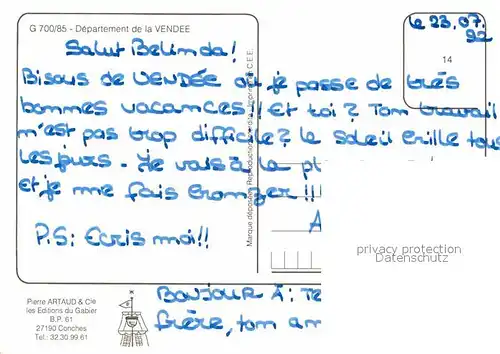 G 700/85 - Département de la VENDEE
le 23.07.
92
14
Salut Belinda!
Bisous de VENDÉE où je passe de très
bonnes vacances! Et toi? Ton travail
n'est pas trop difficile? Le soleil brille tous
les jours. Je vais à la pl
et je me fais bronzer!!
A
P.S: Ecris moi!!
Marque déposée Reproduction C.E.E.
privacy protection
Datenschutz
Pierre ARTAUD & Cie
les Editions du Gabier
B.P. 61
27190 Conches
Tel.: 32.30.99.61
BONJOUR À: TE
frère, ton am